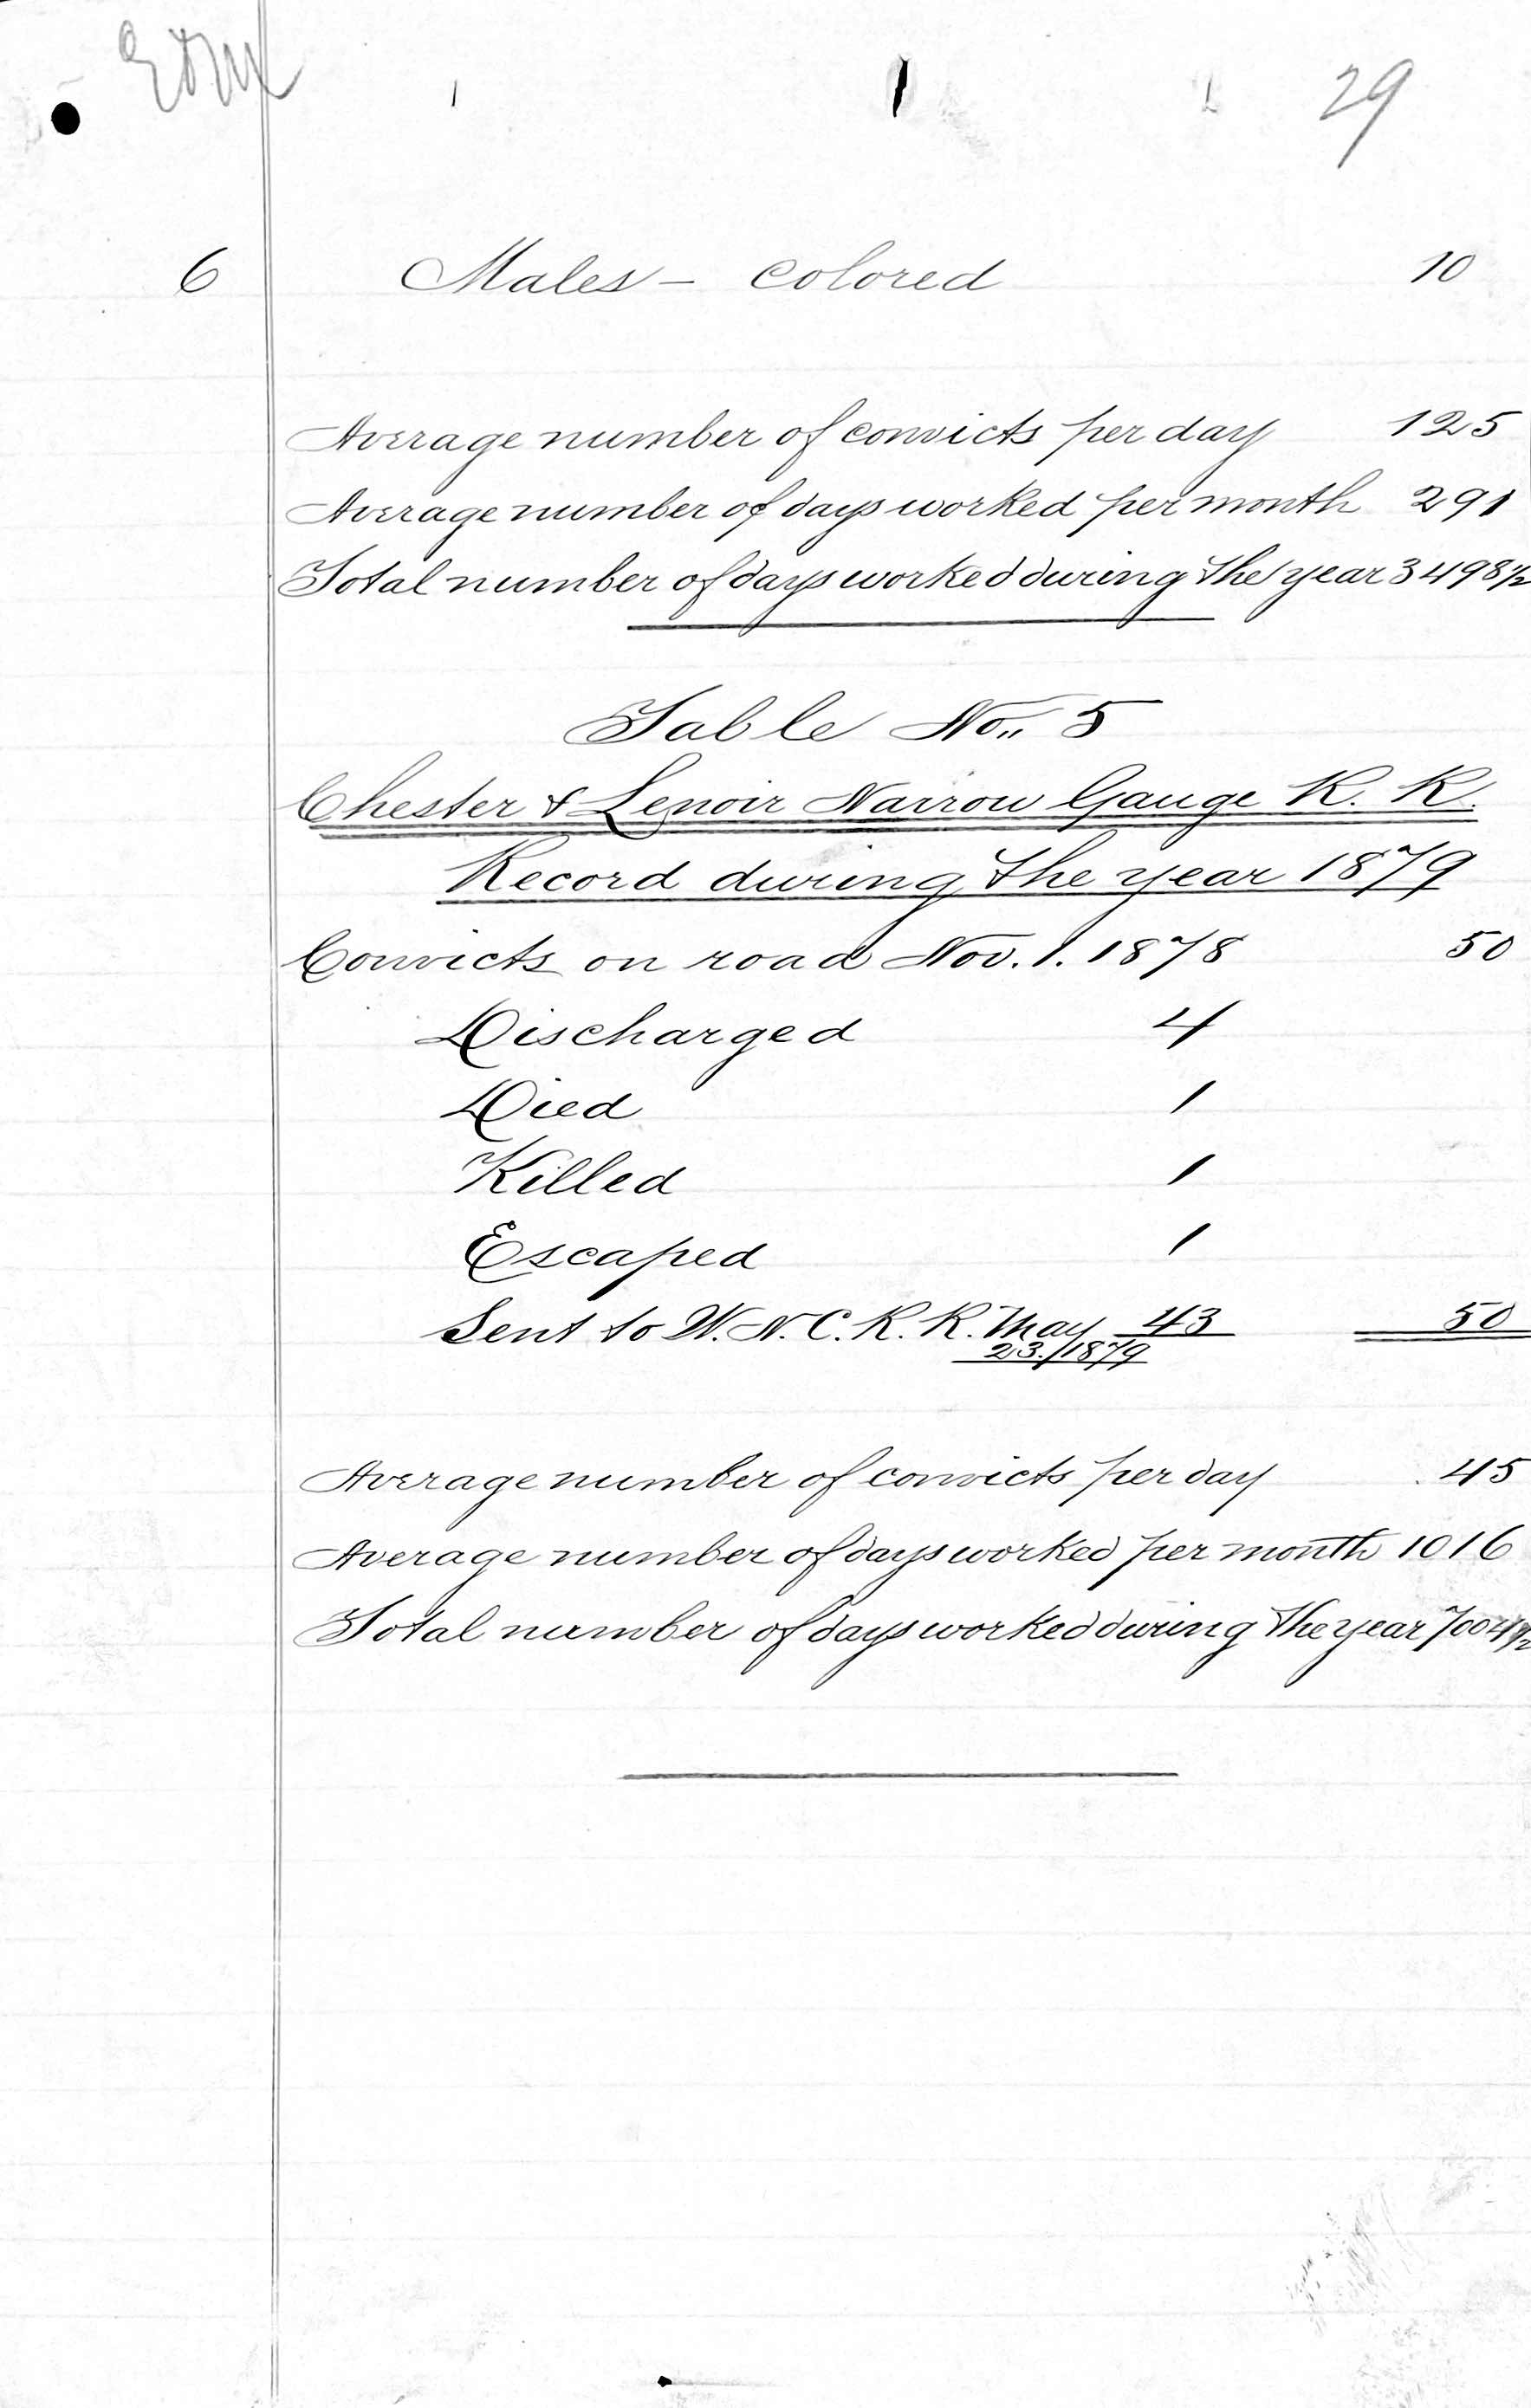 29
6 Males - colored 10
Average number of convicts per day 125
Average number of days worked per month 291
Total number of days worked during the year 3498 1/2
Table No. 5
Chester & Lenoir Narrow Gauge R. R.
Record during the year 1879
Convicts on road Nov. 1. 1878 50
Discharged 4
Died 1
Killed 1
Escaped 1
Sent to W. N. C. R. R. May 43 50
23./1879
Average number of convicts per day 45
Average number of days worked per month 1016
Total number of days worked during the year 7004 1/2